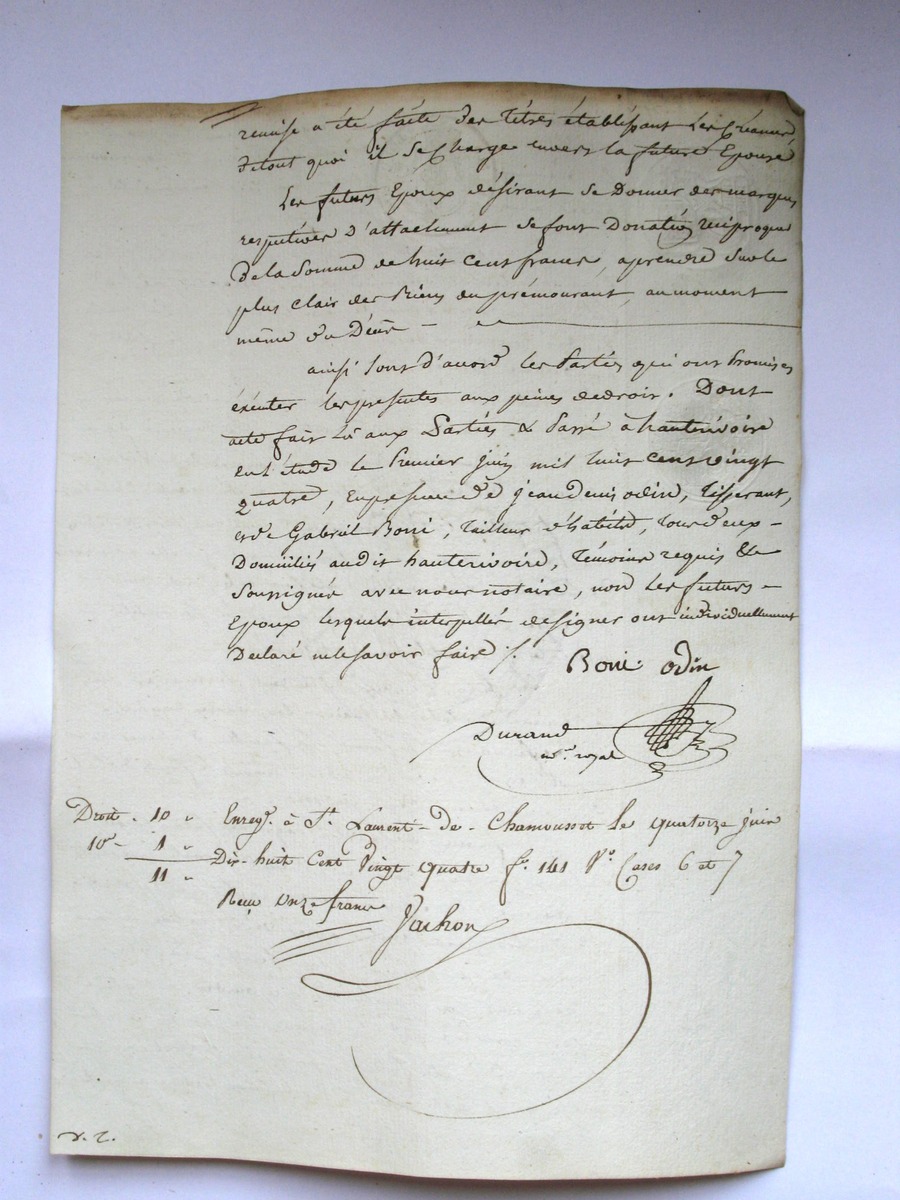 remise a été faite des titres établissant les Créances,
de tout quoi il se Charge envers la future Epouse
Les futurs Epoux désirant se Donner des marques
respectives d'attachement se font Donation réciproque
De la Somme de huit Cent francs, aprendre sur le
plus clair des Biens du prémourant, au moment
même du Décès —
ainsi sont d'accord les Parties qui ont Promis en
éxécuter les presentes aux peines de droit. Dont
acte fait Lû aux Parties & Passé à hauterivoire
en l'étude le Premier juin mil huit Cent vingt
quatre, En présence de jean denis odin, Tisserant,
et de Gabriel Boni, Tailleur d'habits, tous deux -
Domiciliés audit hauterivoire, Témoins requis &
Soussignés avec nous notaire, non les futurs -
Epoux lesquels interpellés de signer ont individuellement
Déclaré ne le savoir faire ./.
Boni odin
Durand
no.re royal
Droit . 10 "
10e - 1 "
11 "
Enregé. à St. Laurent-de-Chamousset le quatorze juin
Dix-huit Cent Vingt quatre fo. 141 Vo. Cases 6 et 7
Reçu onze francs
Jachon